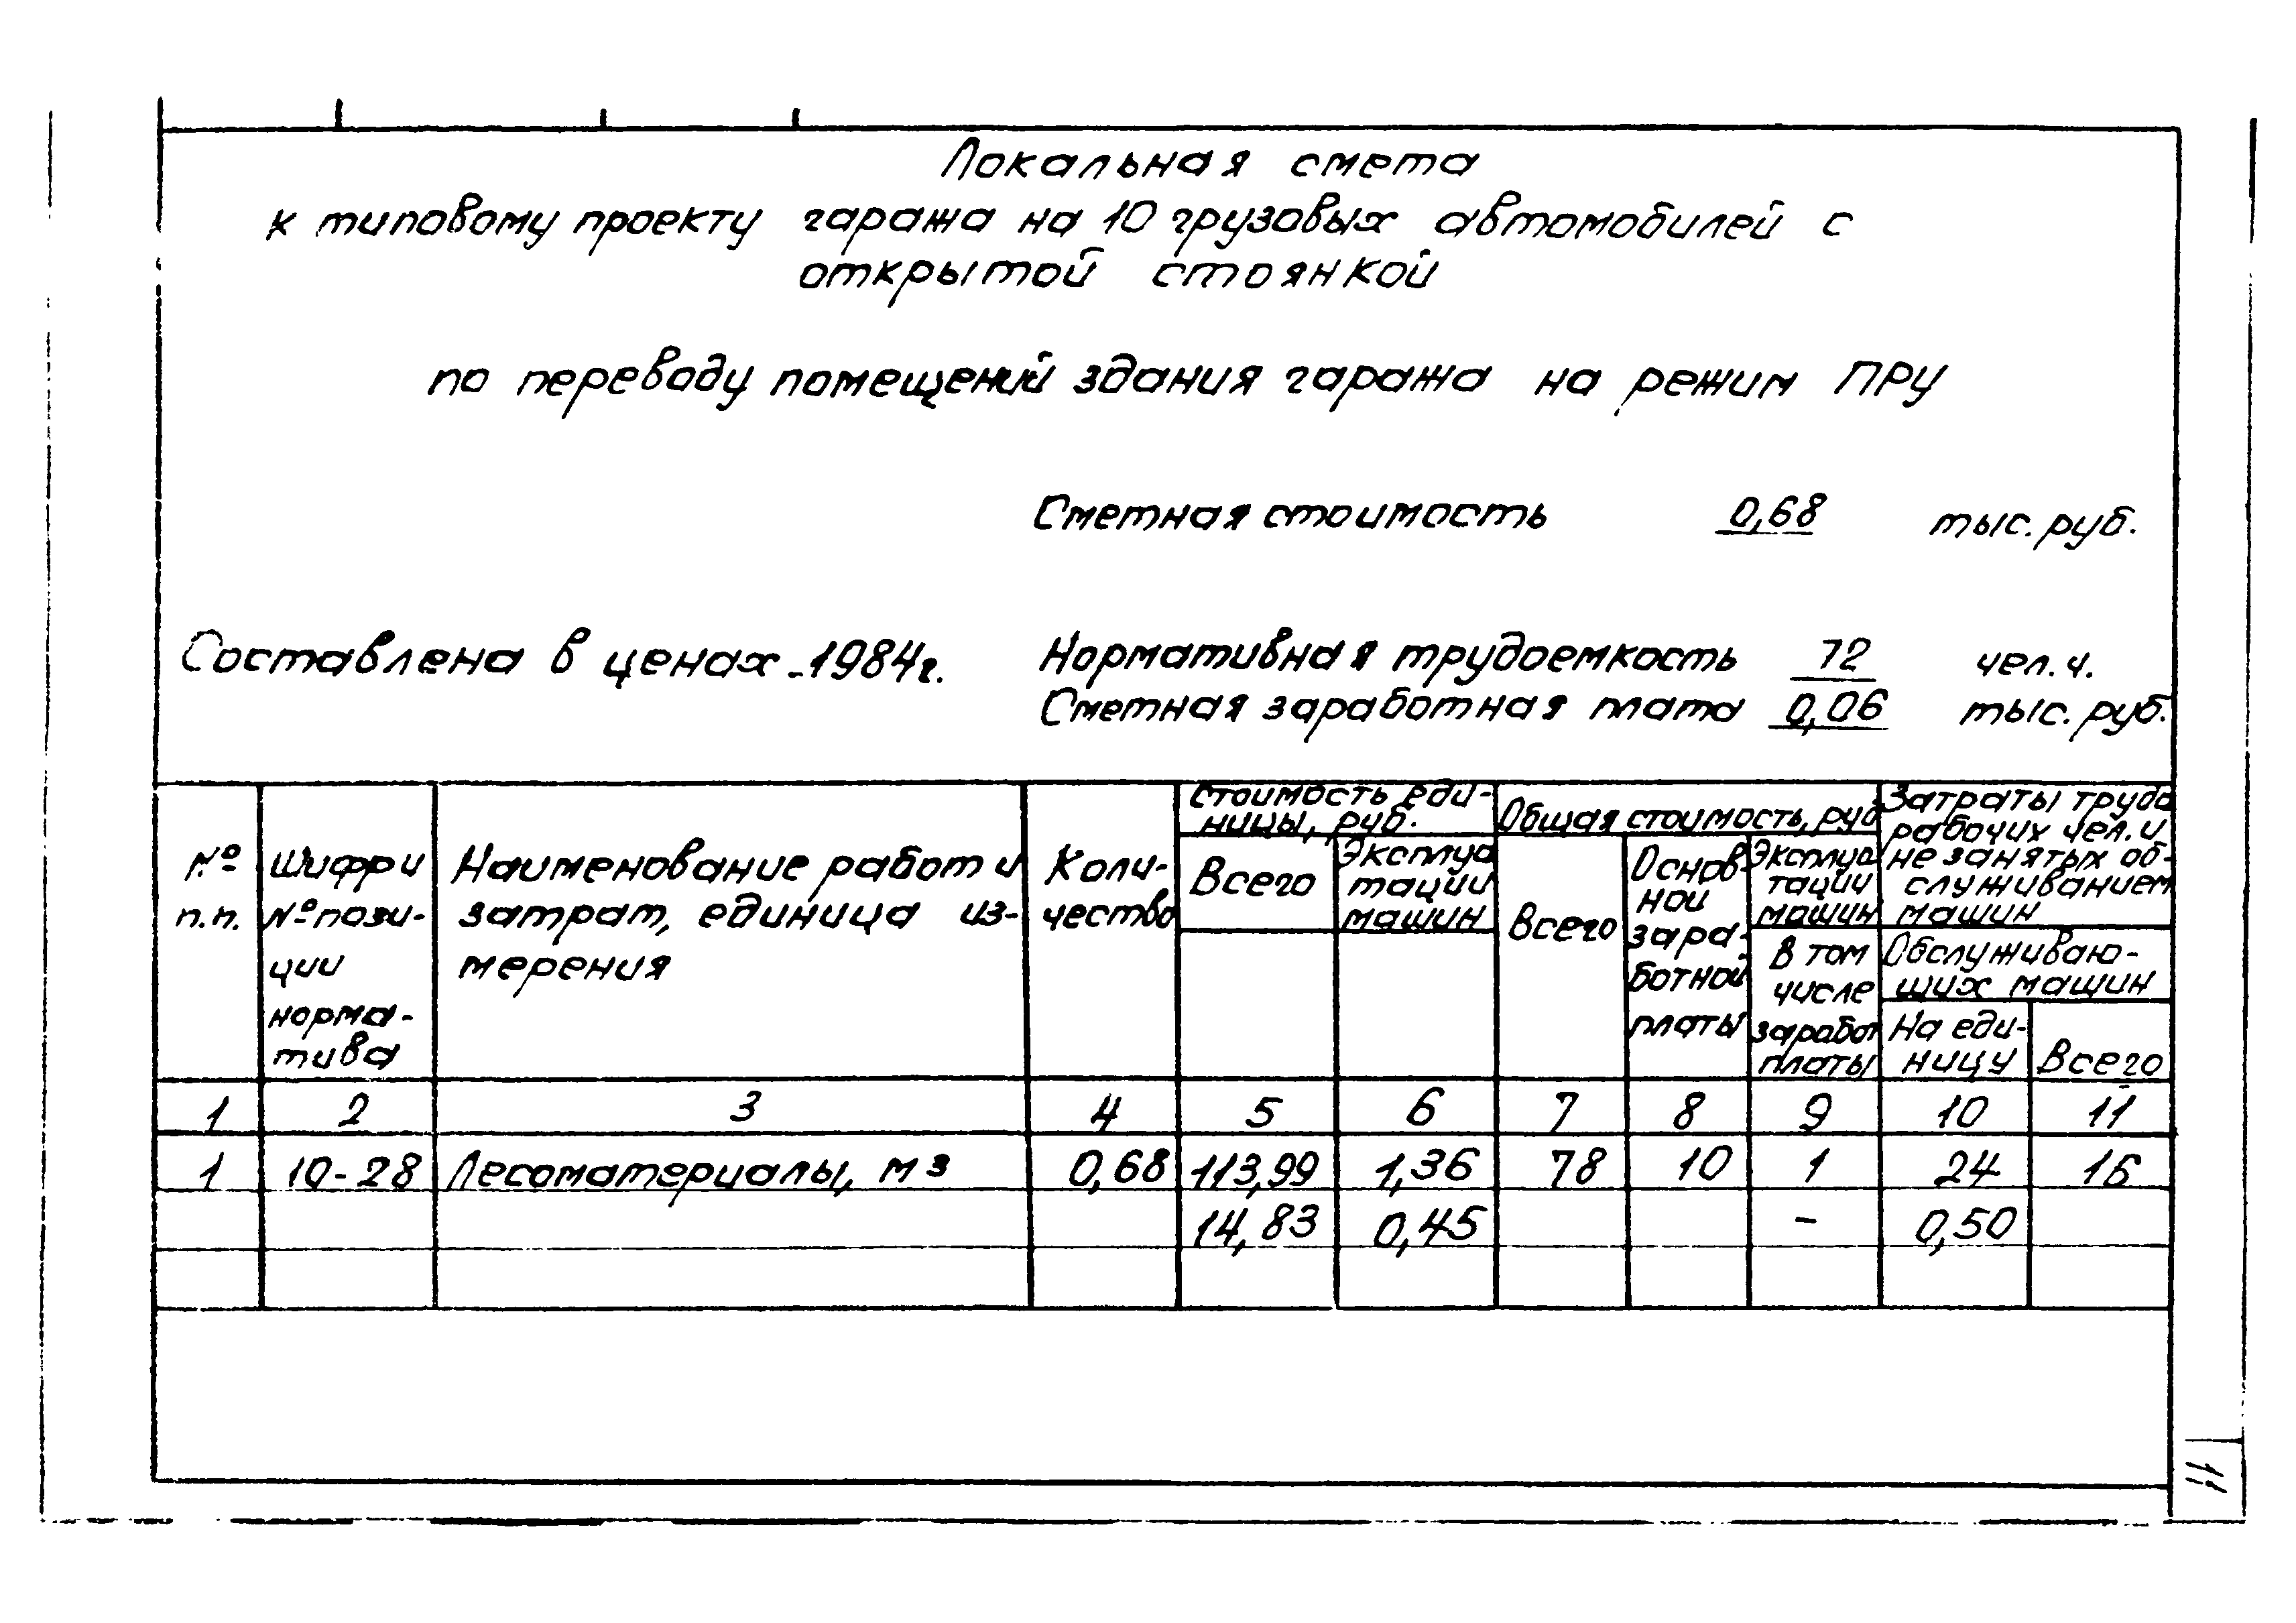 Локальная смета
к типовому проекту гаража на 10 грузовых автомобилей с
открытой стоянкой
по переводу помещений здания гаража на режим ПРУ
Сметная стоимость 0,68 тыс. руб.
Составлена в ценах - 1984г. Нормативная трудоемкость 72 чел. ч.
Сметная заработная плата 0,06 тыс. руб.
№
п.п.
Шифр и
№ пози-
ции
норма-
тива
Наименование работ и
затрат, единица из-
мерения
Коли-
чество
Стоимость еди-
ницы, руб.
Всего
Эксплуа
тации
машин
Общая стоимость, руб
Всего
Основ-
ной
зара-
ботной
платы
Эксплуа
тации
машин
В том
числе
заработ
платы
Затраты труда
рабочих чел. ч
не занятых об-
служиванием
машин
Обслуживаю-
щих машин
На еди-
ницу
Всего
1 2 3 4 5 6 7 8 9 10 11
1 10-28 Лесоматериалы, м3 0,68 113,99 1,36 78 10 1 24 16
14,83 0,45 - 0,50
11